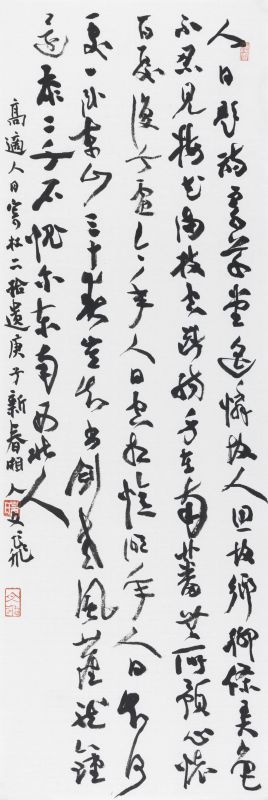 人日題詩寄草堂遙憐故人思故鄉柳條弄色
不忍見梅花滿枝空斷腸身在南蕃無所預心懷
百憂復千慮今年人日空相憶明年人日知何
處一卧東山三十春豈知書劍老風塵龍鍾
還忝二千石愧爾東南西北人
高適人日寄杜二拾遺庚子新春